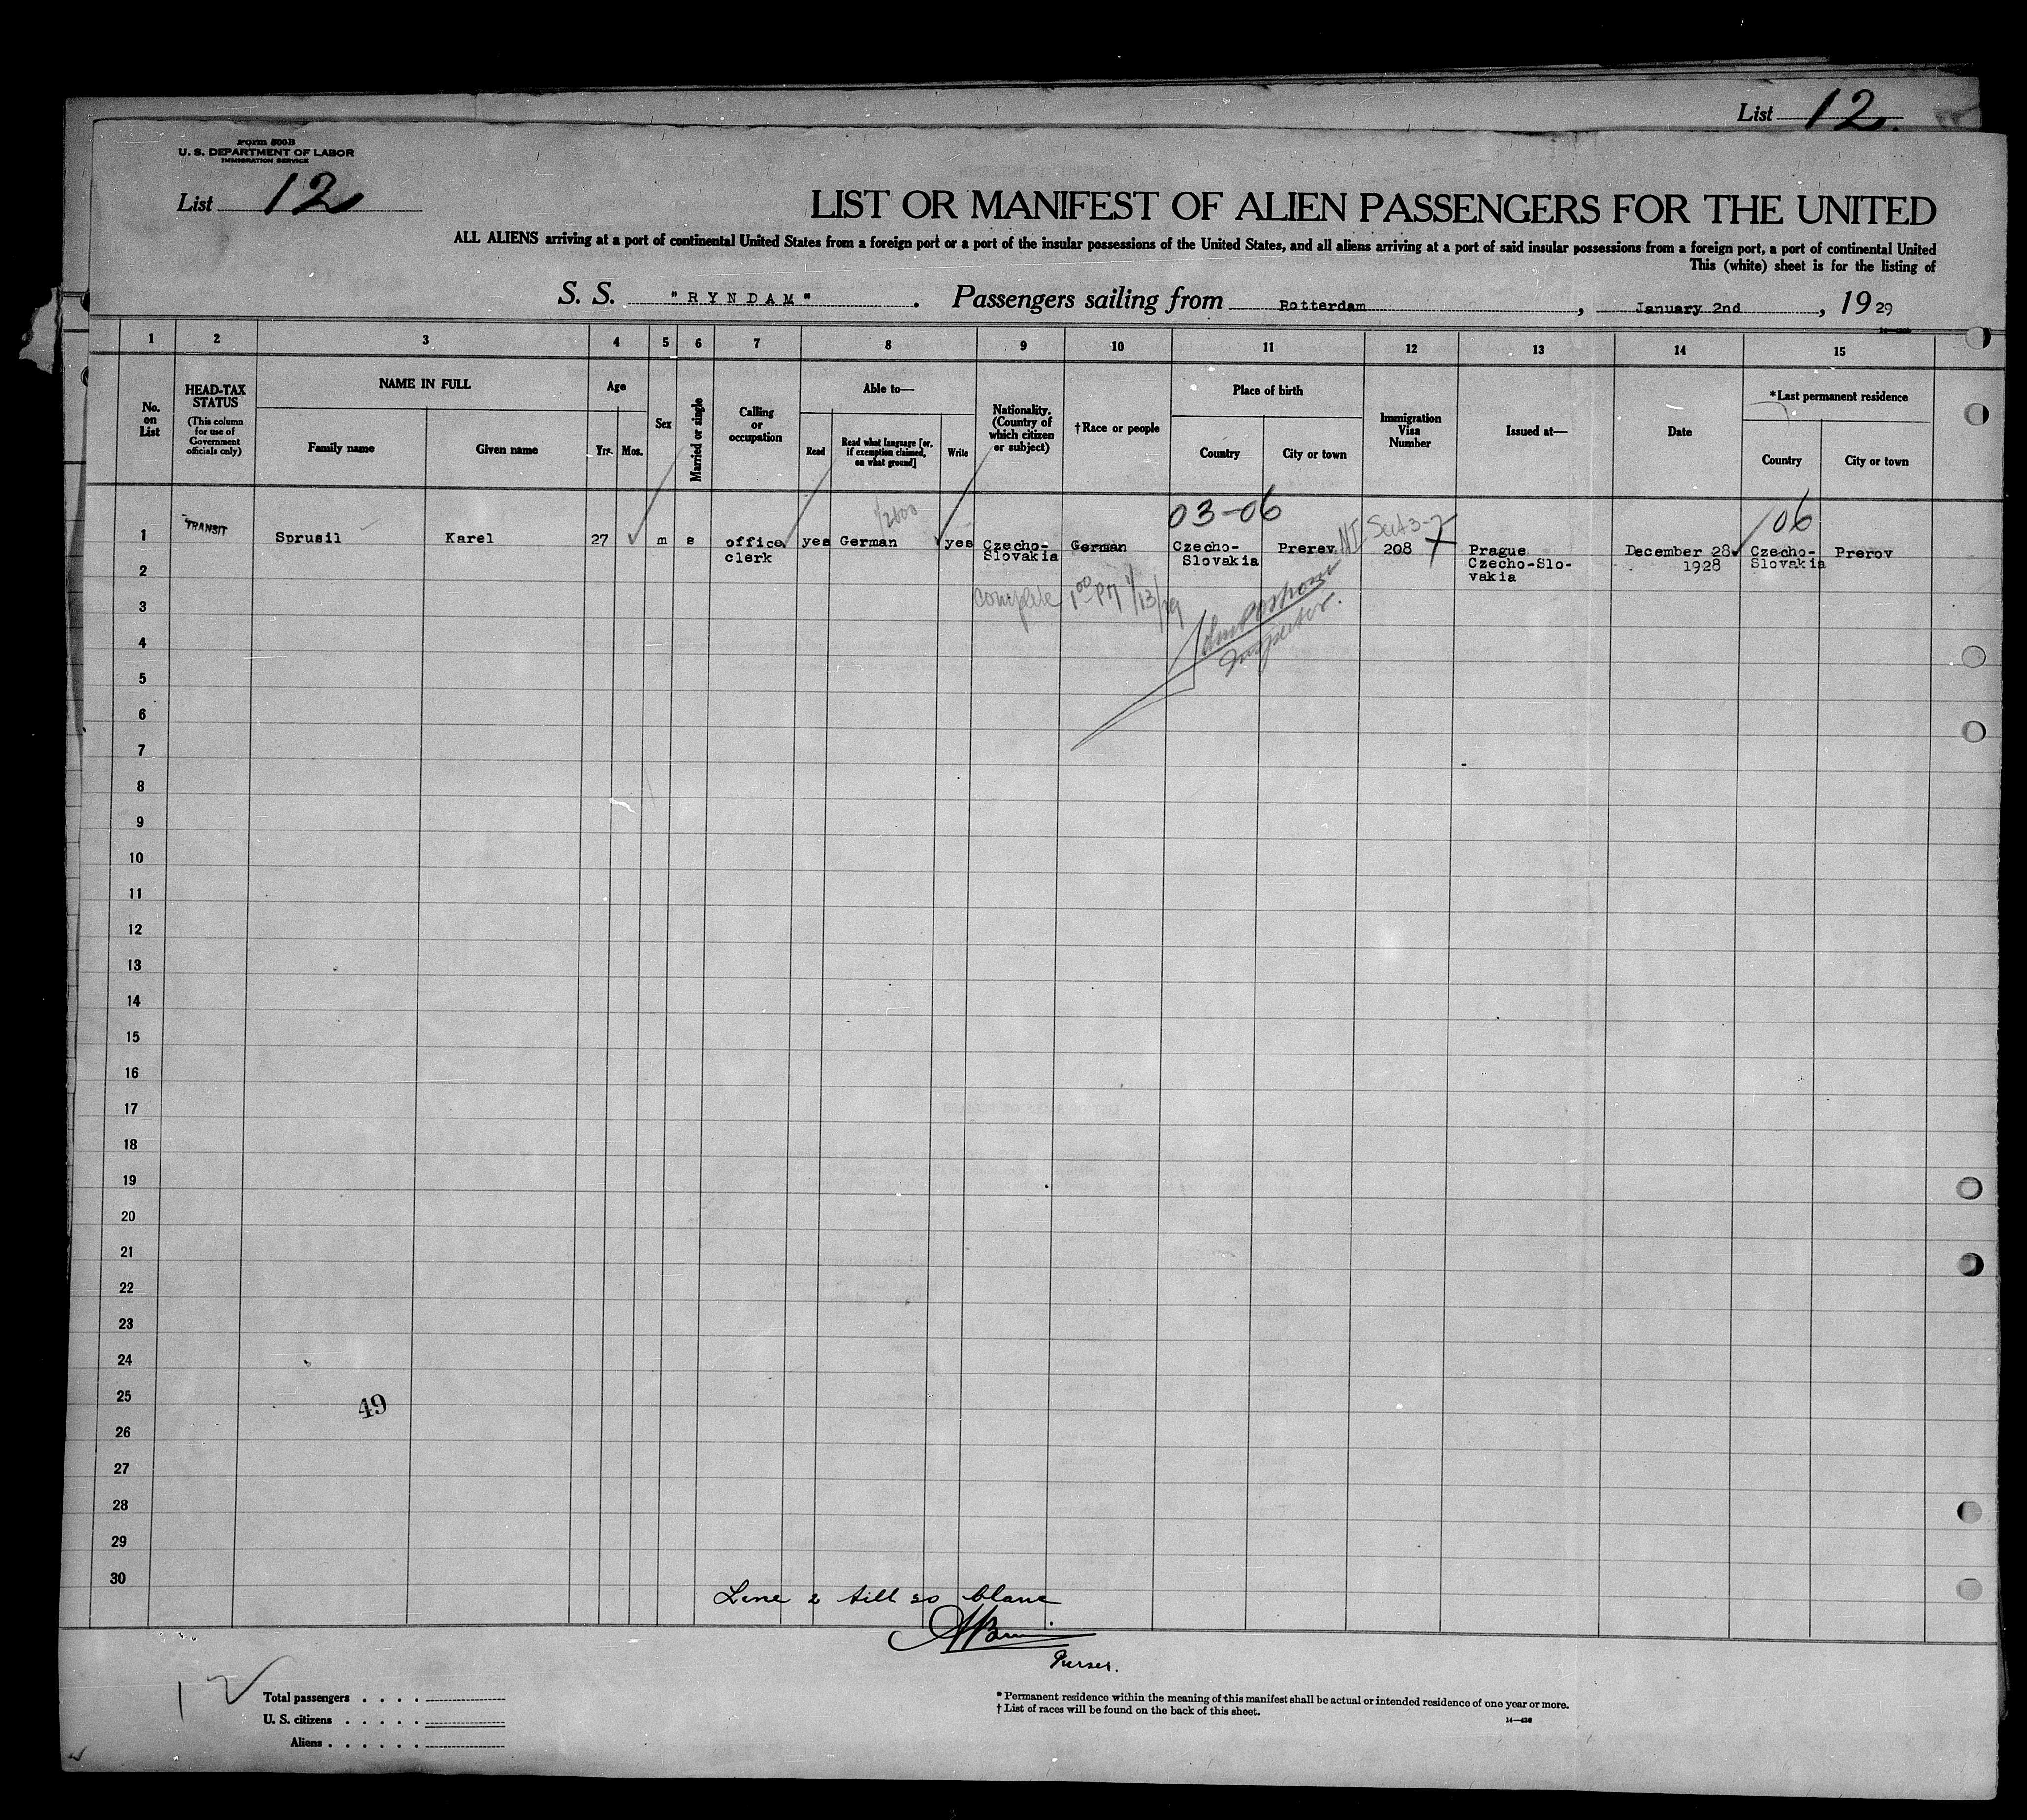 List 12.
Form 500B
U. S. DEPARTMENT OF LABOR
IMMIGRATION SERVICE
List 12
LIST OR MANIFEST OF ALIEN PASSENGERS FOR THE UNITED
ALL ALIENS arriving at a port of continental United States from a foreign port or a port of the insular possessions of the United States, and all aliens arriving at a port of said insular possessions from a foreign port, a port of continental United
This (white) sheet is for the listing of
S. S. "RYNDAM". Passengers sailing from Rotterdam, January 2nd, 1929
1 2 3 4 5 6 7 8 9 10 11 12 13 14 15
No. on List
HEAD-TAX STATUS
(This column for use of Government officials only)
NAME IN FULL
Family name
Given name
Age
Yrs.
Mos.
Sex
Married or single
Calling or occupation
Able to—
Read
Read what language [or, if exemption claimed, on what ground]
Write
Nationality. (Country of which citizen or subject)
†Race or people
Place of birth
Country
City or town
Immigration Visa Number
Issued at—
Date
*Last permanent residence
Country
City or town
03-06
06
1 TRANSIT Sprusil Karel 27 m s office clerk yes German yes Czecho-Slovakia German Czecho-Slovakia Prerov NI Sect 3-2 208 Prague Czecho-Slovakia December 28 1928 Czecho-Slovakia Prerov
complete 1 00 PM 1/13/29
Inspector.
2
3
4
5
6
7
8
9
10
11
12
13
14
15
16
17
18
19
20
21
22
23
24
25
49
26
27
28
29
30
Line 2 till 30 blanc
Purser.
12
Total passengers
U. S. citizens
Aliens
* Permanent residence within the meaning of this manifest shall be actual or intended residence of one year or more.
† List of races will be found on the back of this sheet.
14—436